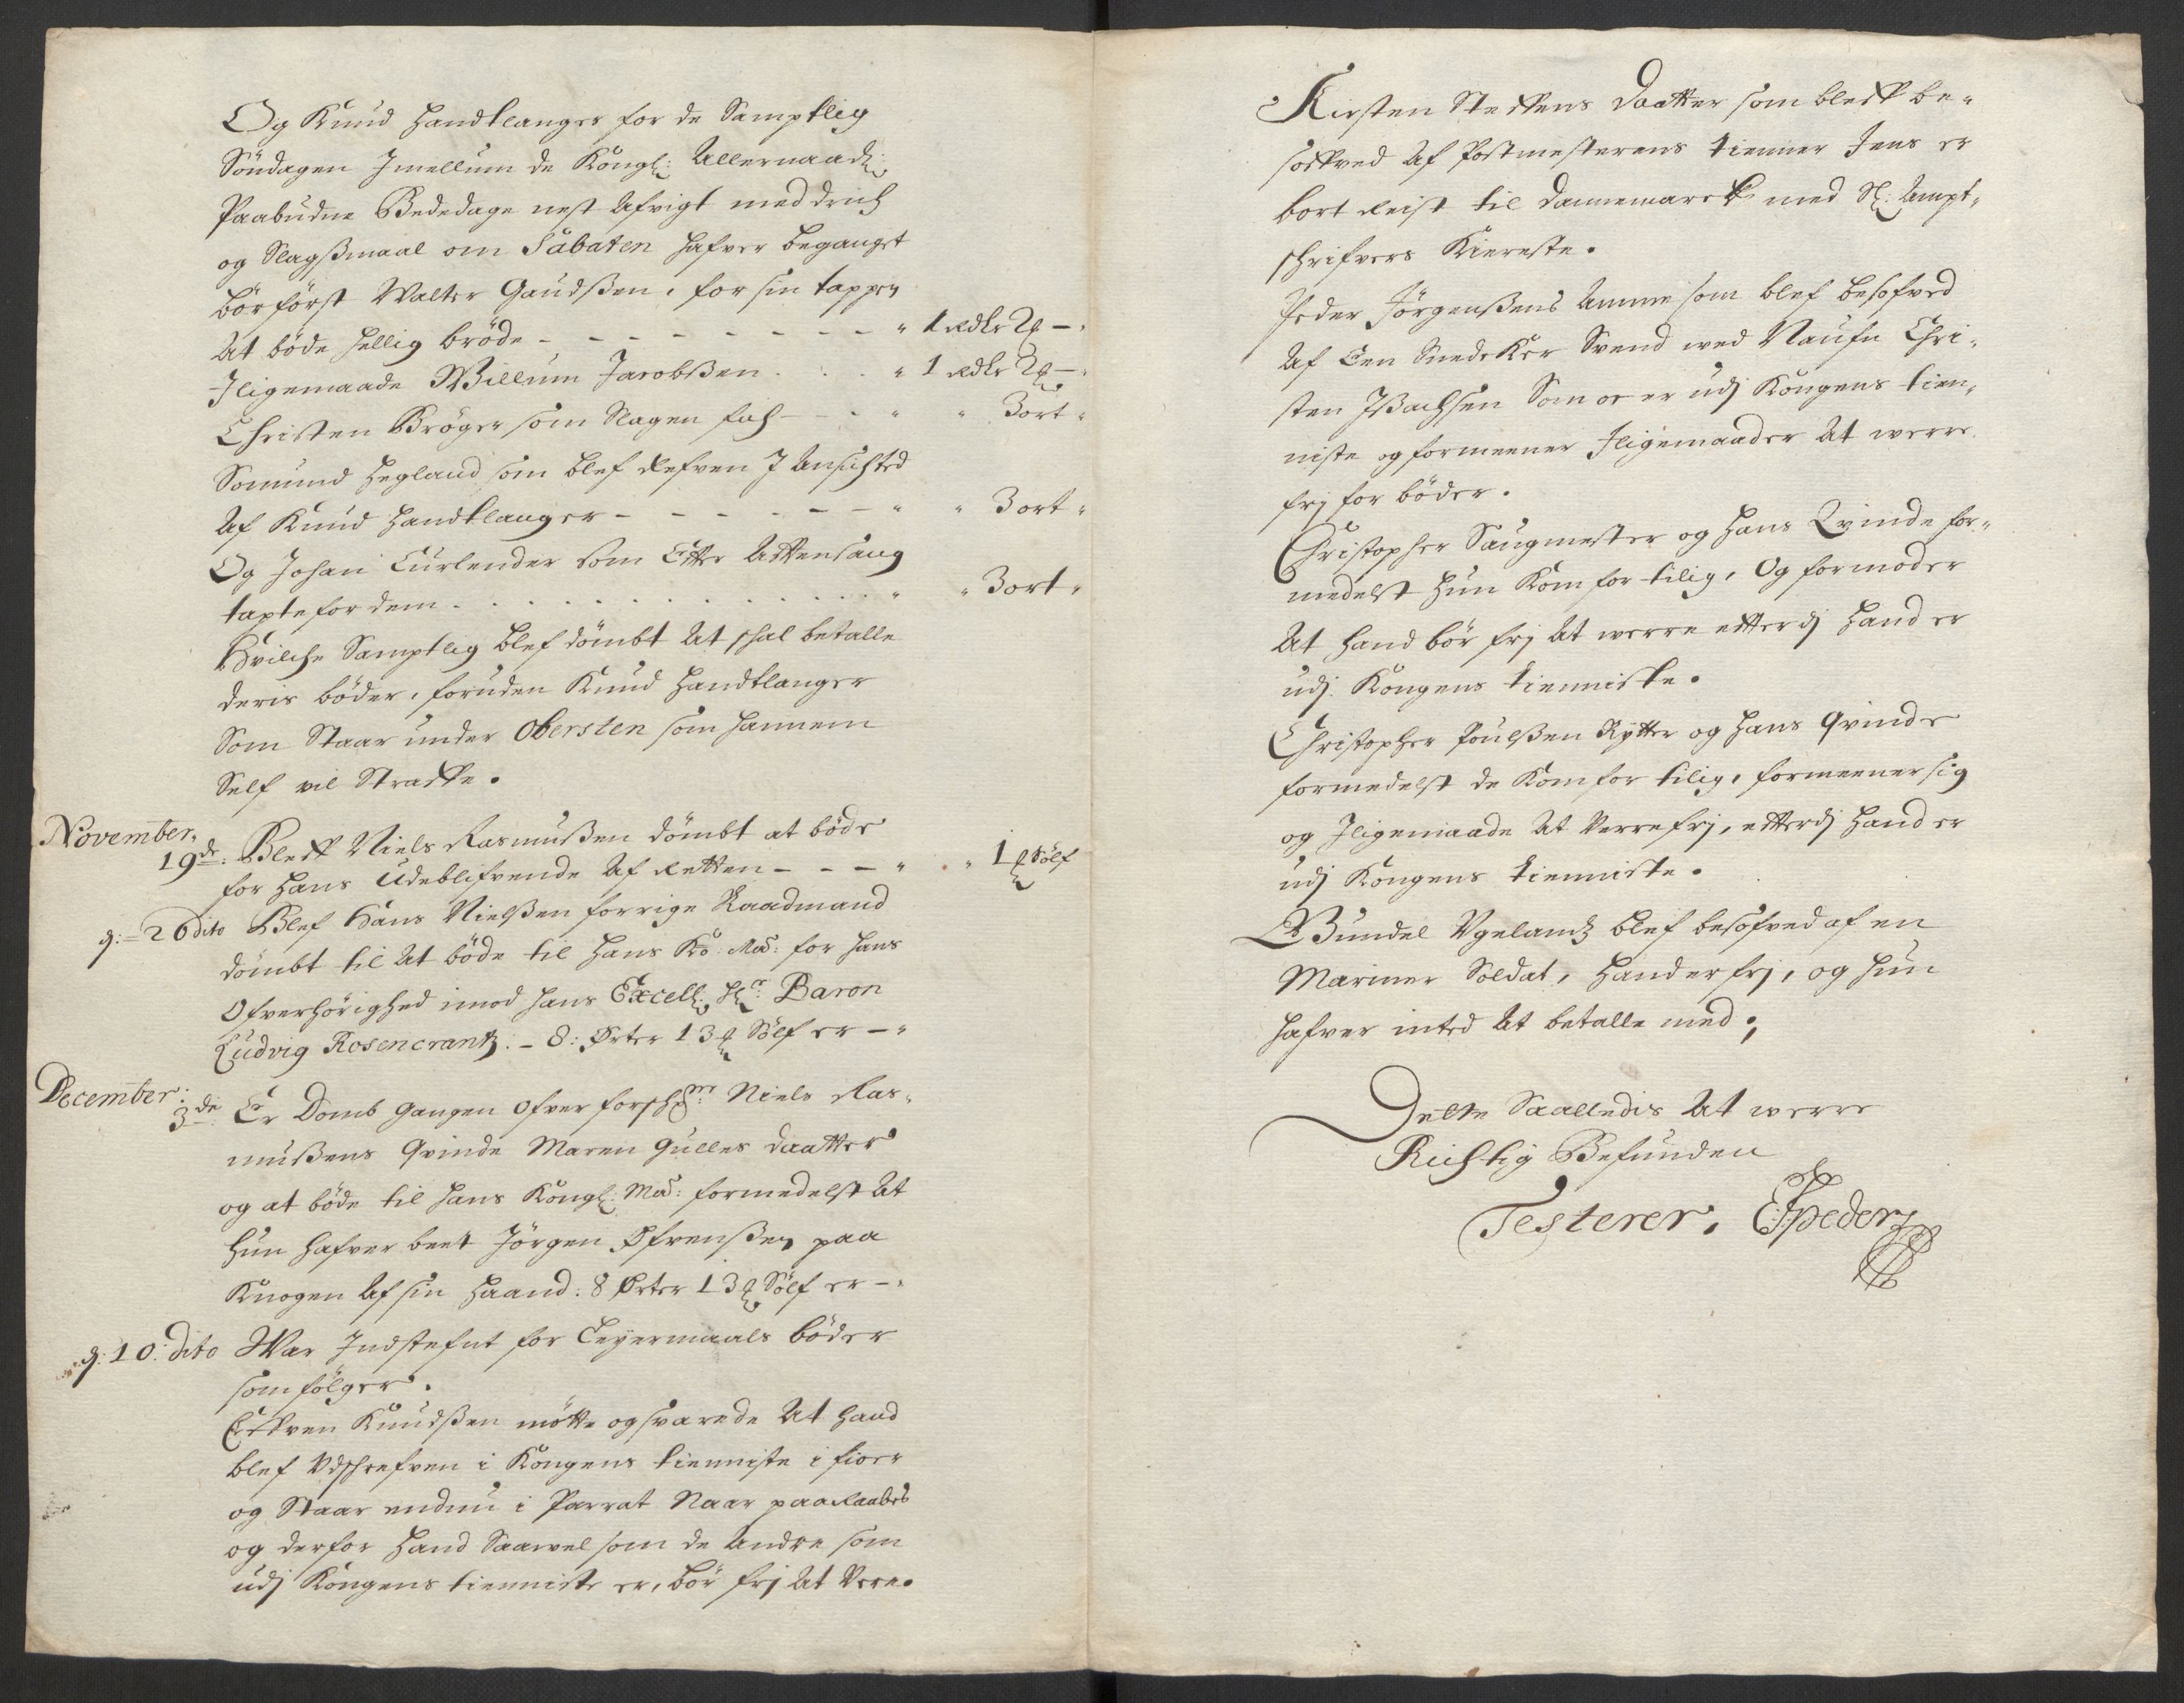 Og Knud Handtlanger for de Samptlig
Söndagen Jmellum de Kongl: Allernaadl:
Paabudne Bededage nest Afvigt med drich
og Slagßmaal om Sabaten hafver beganget
bör först Walter Gaudßen, for sin tappen
At böde hellig bröde - - - - - - - - " 1 Rdlr
Jligemaade Willum Jacobßen . . . " 1 Rdlr
Christen Bröger som Slagen fich - - - " " 3 ort "
Somund Hegland som blef Refven J Ansichted
Af Knud Handtlanger - - - - - - " " 3 ort "
Og Johan Curlender som Etter Afftensang
tapte for dem . . . . . . . . . . . " " 3 ort "
Hvilche Samptlig blef dömbt At schal betalle
deris böder, foruden Knud Handtlanger
Som Staar under Obersten som hannem
Self vil Straffe.
November.
19de: Bleff Niels Rasmußen dömbt at böde
for hans Udeblifvende Af Retten - - - " " 1 Sölf
d: 26 dito Blef Hans Nielßen forrige Raadmand
dömbt til At böde til Hans Ko: Ma: for hans
Ofverhörighed imod hans Excell: Hr: Baron
Ludvig Rosencrantz: - 8: Örter 13 Sölf er - "
December:
3de Er Domb Gangen Ofver forschr: Niels Ras-
mußens Qvinde Maren Gulles daatter
og at böde til hans Kongl: Ma: formedelst At
hun hafver beet Jörgen Öfvenßen paa
Knogen Af sin Haand: 8 Örter 13 Sölf er - "
d: 10: dito War Jndstefnt for Leyermaals böder
som fölger.
Effven Knudßen mötte og svarede At Hand
blef Vdschrefven i Kongens tienniste i fior
og Staar endnu i Parrat Naar paaRaabes
og derfor Hand Saawel som de Andre som
udj Kongens tienniste er, bör frj At Vere.
Kirsten Steffens Daatter som bleff be-
soffved Af Postmesterens tienner Jens er
bort Reist til Dannemarck med Sl: Ampt-
schrifvers Kiereste.
Peder Jörgenßens Amme som blef besofved
Af Een Snedeker Svend ved Naufn Chri-
sten Jßachsen Som oc er udj Kongens tien-
niste og formeener Jligemaader At werre
frj for böder.
Christopher Saugmester og Hans Qvinde for-
medelst Hun Kom for tilig, Og formoder
At Hand bör frj At werre effterdj Hand er
udj Kongens tienniste.
Christopher Poulßen Rytter og Hans Qvinde
formedelst de Kom for tilig, formeener sig
og Jligemaade At Verre frj, effterdj Hand er
udj Kongens tienniste.
Gundel Vgelandz blef besofved af en
Mariner Soldat, Hand er frj, og hun
hafver inted At betalle med.
Dette Saalledis At werre
Richtig Befunden
Testerer.